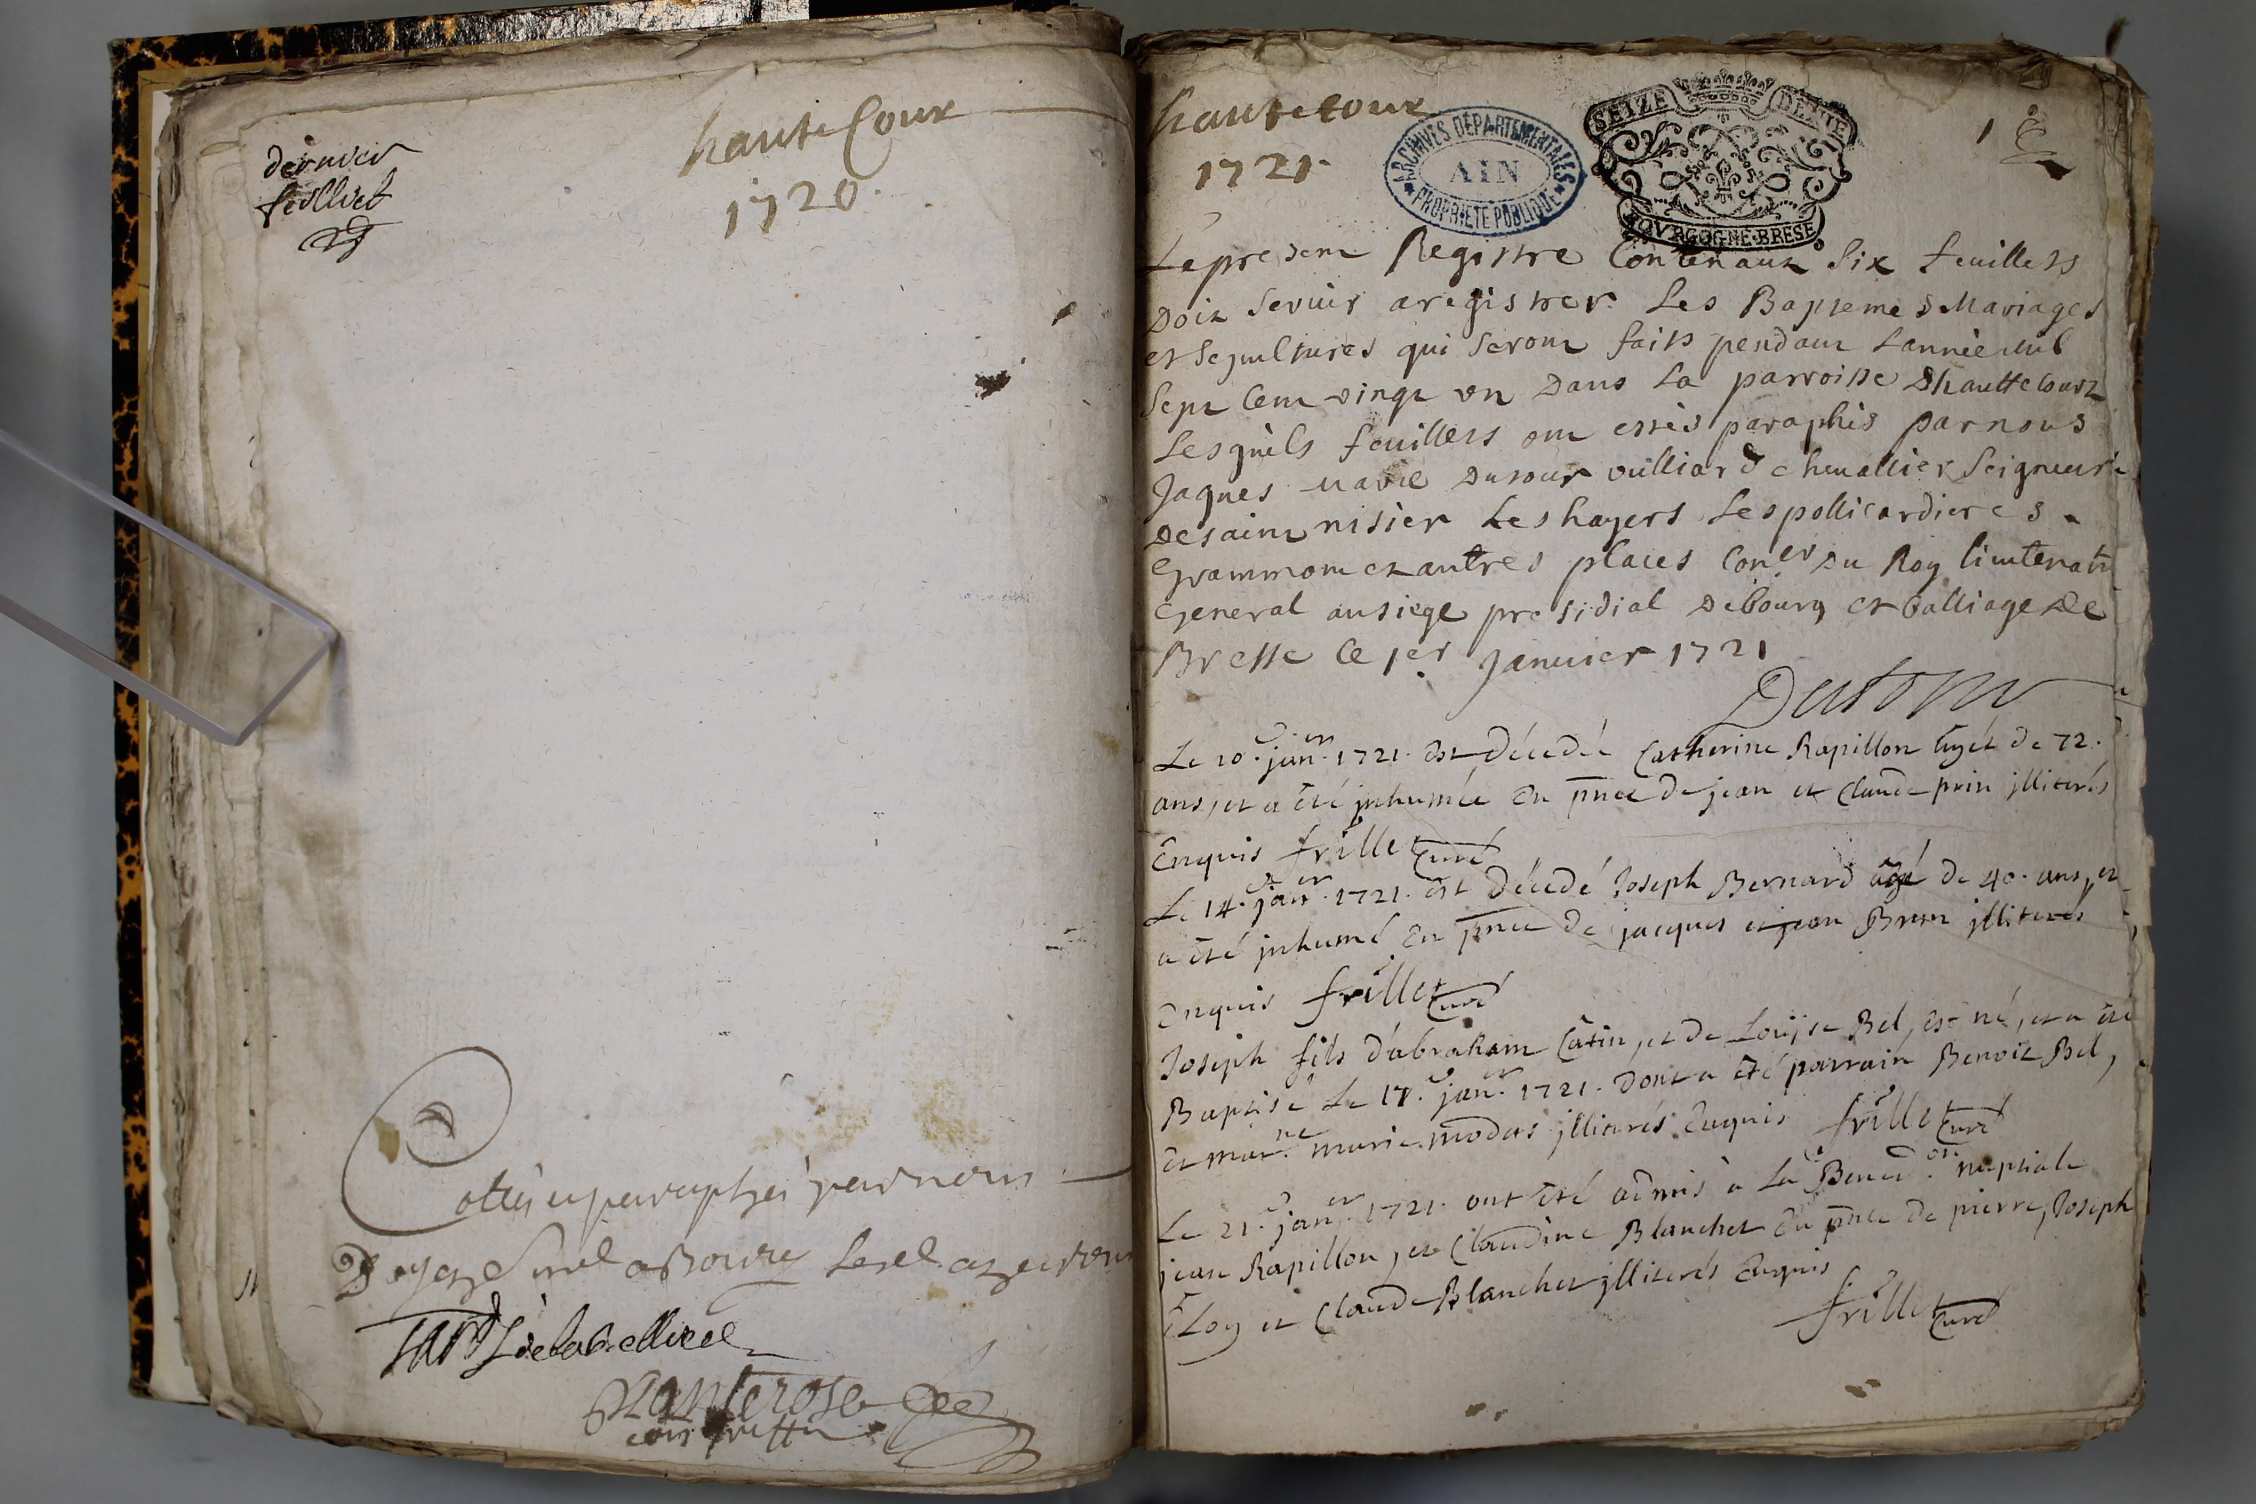 dernier
feilliet
haute Cour
1720.
Cottés et paraphés par nous
hautecour
1721.
ARCHIVES DÉPARTEMENTALES
AIN
PROPRIÉTÉ PUBLIQUE
SEIZE DEN
BOVRGOGNE·BRESE
1
Le present Registre Contenant Six feuillets
Doit Servir aregistrer Les Baptemes Mariages
et Sepultures qui Seront faits pendant Lannée mil
Sept Cent vingt un Dans La parroisse Dhauttecourt
Lesquels feuillets ont estés paraphés par nous
Jaques Marie Dutour vuilliard chevallier Seigneur
De saint nisier Les hayers Les pollicardieres
Grammont et autres places Coner Du Roy lieutenant
General au siege presidial De bourg et balliage De
Bresse Ce 1er Janvier 1721
Dutour
Le 10.e janer. 1721. est décedée Catherine Rapillon âgée de 72.
ans, et a été inhumée en pnce de jean et Claude prin illiterés
Enquis frillet Curé
Le 14.e janer. 1721. est décedé Joseph Bernard âgé de 40. ans, et
a été inhumé en pnce de jacques et jean illiterés
enquis frillet Curé
Joseph fils d'abraham Catin, et de Louyse Bel, est né, et a été
Baptisé Le 17.e janer. 1721. dont a été parrain Benoit Bel,
et marne marie modas illiterés Enquis frillet Curé
Le 21.e janer. 1721. ont été admis à La Bened.on nuptiale
jean Rapillon, et Claudine Blanchet en pnce de pierre, Joseph
Eloy et Claude Blanchet illiterés Enquis
frillet Curé